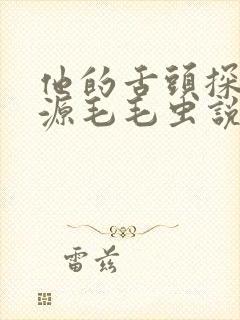 他的舌頭探
源毛毛虫說
雷茲